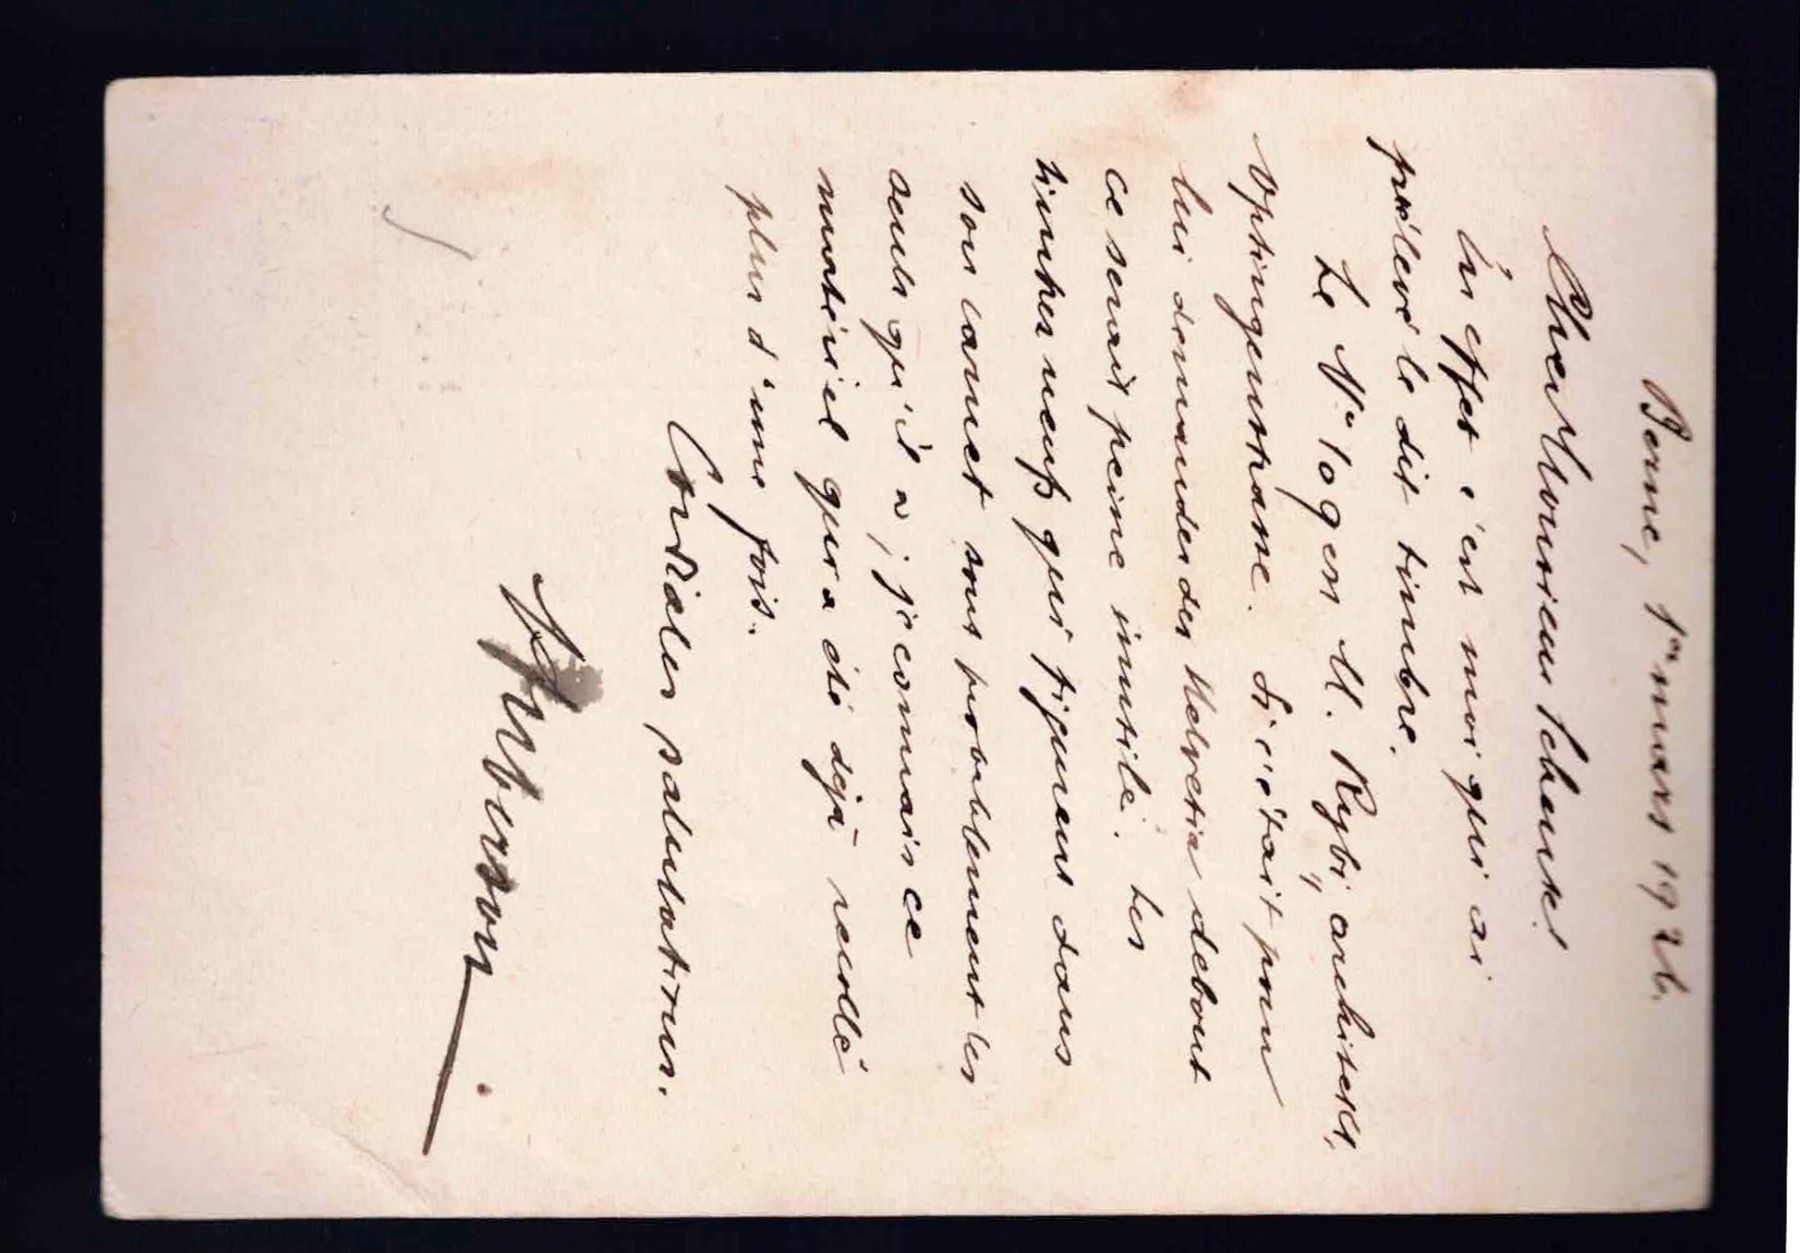 Berne, 1er mars 1926.
Cher Monsieur Schenk!
En effet c'est moi qui ai
prélevé le dit timbre.
Le No 109 est M. Rybi, architecte,
Optingenstrasse. Si c'était pour
lui demander des Helvetia debout
ce serait peine inutile. Les
timbres neufs qui figurent dans
son carnet sont probablement les
seuls qu'il a; je connais ce
matériel qui a été déjà récolté
plus d'une fois.
Cordiales salutations.